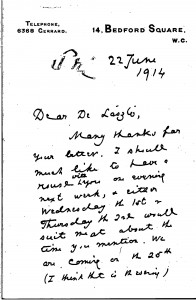 TELEPHONE,
6368 GERRARD.
14, BEDFORD SQUARE,
W.C.
22 June
1914
Dear De László,
Many thanks for
your letter. I should
much like to have a
with you on evening
next week, & either
Wednesday the 1st or
Thursday the 2nd would
suit me at about the
time you mention. We
are coming on the 25th
(I think that is the evening)